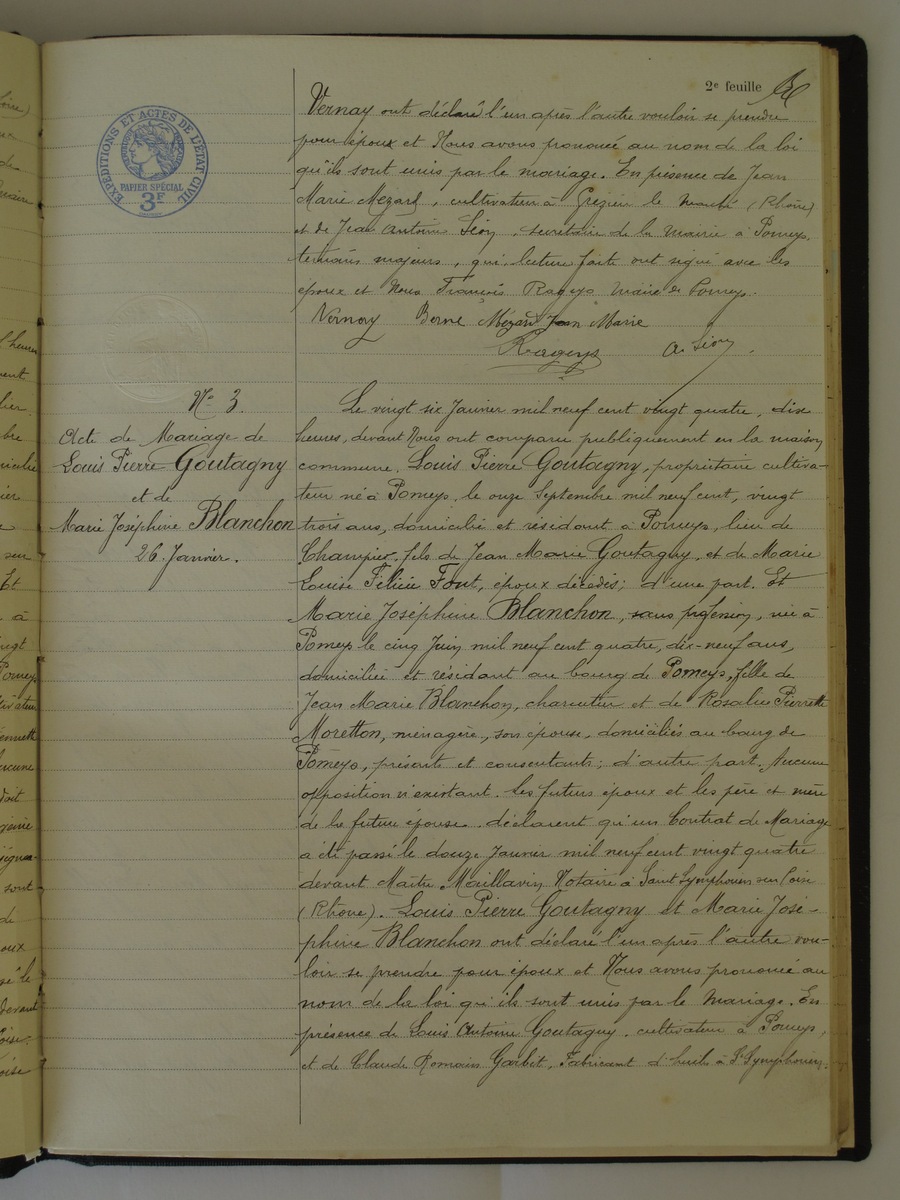 2e feuille
EXPEDITIONS ET ACTES DE L'ETAT CIVIL
PAPIER SPÉCIAL
3F
Vernay ont déclaré l'un après l'autre vouloir se prendre
pour époux et Nous avons prononcé au nom de la loi
qu'ils sont unis par le mariage. En présence de Jean
Marie Mézard, cultivateur à Grézieu le Marché (Rhône)
et de Jean Antoine Léon, secrétaire de la Mairie à Pomeys,
témoins majeurs, qui, lecture faite ont signé avec les
époux et Nous François Rageys Maire de Pomeys.
Vernay Berne Mézard Jean Marie
Rageys A. Léon
No 3.
Acte de Mariage de
Louis Pierre Goutagny
et de
Marie Joséphine Blanchon
26 Janvier.
Le vingt six Janvier mil neuf cent vingt quatre, dix
heures, devant Nous ont comparu publiquement en la maison
commune. Louis Pierre Goutagny, propriétaire cultiva-
teur né à Pomeys, le onze Septembre mil neuf cent, vingt
trois ans, domicilié et résidant à Pomeys, lieu de
Champier, fils de Jean Marie Goutagny, et de Marie
Louise Félicie Font, époux décédés; d'une part. Et
Marie Joséphine Blanchon, sans profession, née à
Pomeys le cinq Juin mil neuf cent quatre, dix-neuf ans,
domiciliée et résidant au bourg de Pomeys, fille de
Jean Marie Blanchon, charentier et de Rosalie Pierrette
Moretton, ménagère, son épouse, domiciliés au bourg de
Pomeys, présents et consentants; d'autre part. Aucune
opposition n'existant. Les futurs époux et les père et mère
de la future épouse, déclarent qu'un Contrat de Mariage
a été passé le douze Janvier mil neuf cent vingt quatre
devant Maître Maillavin Notaire à Saint Symphorien sur Coise
(Rhône). Louis Pierre Goutagny et Marie José-
phine Blanchon ont déclaré l'un après l'autre vou-
loir se prendre pour époux et Nous avons prononcé au
nom de la loi qu'ils sont unis par le Mariage. En
présence de Louis Antoine Goutagny, cultivateur à Pomeys,
et de Claude Romain Garbit, Fabricant d'huile à St Symphorien.